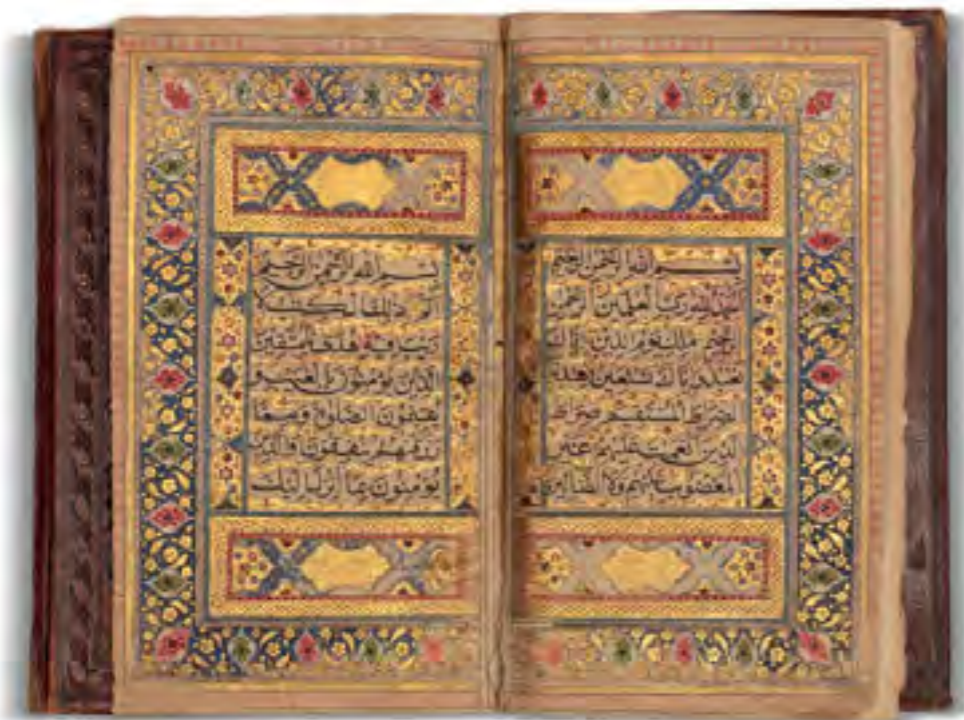 بسم الله الرحمن الرحيم
الحمد لله رب العلمين الرحمن
الرحيم ملك يوم الدين اياك
نعبد واياك نستعين اهدنا
الصراط المستقيم صراط
الذين انعمت عليهم غير
المغضوب عليهم ولا الضالين
بسم الله الرحمن الرحيم
الم ذلك الكتب لا
ريب فيه هدى للمتقين
الذين يؤمنون بالغيب و
يقيمون الصلوة ومما
رزقنهم ينفقون والذين
يؤمنون بما انزل اليك